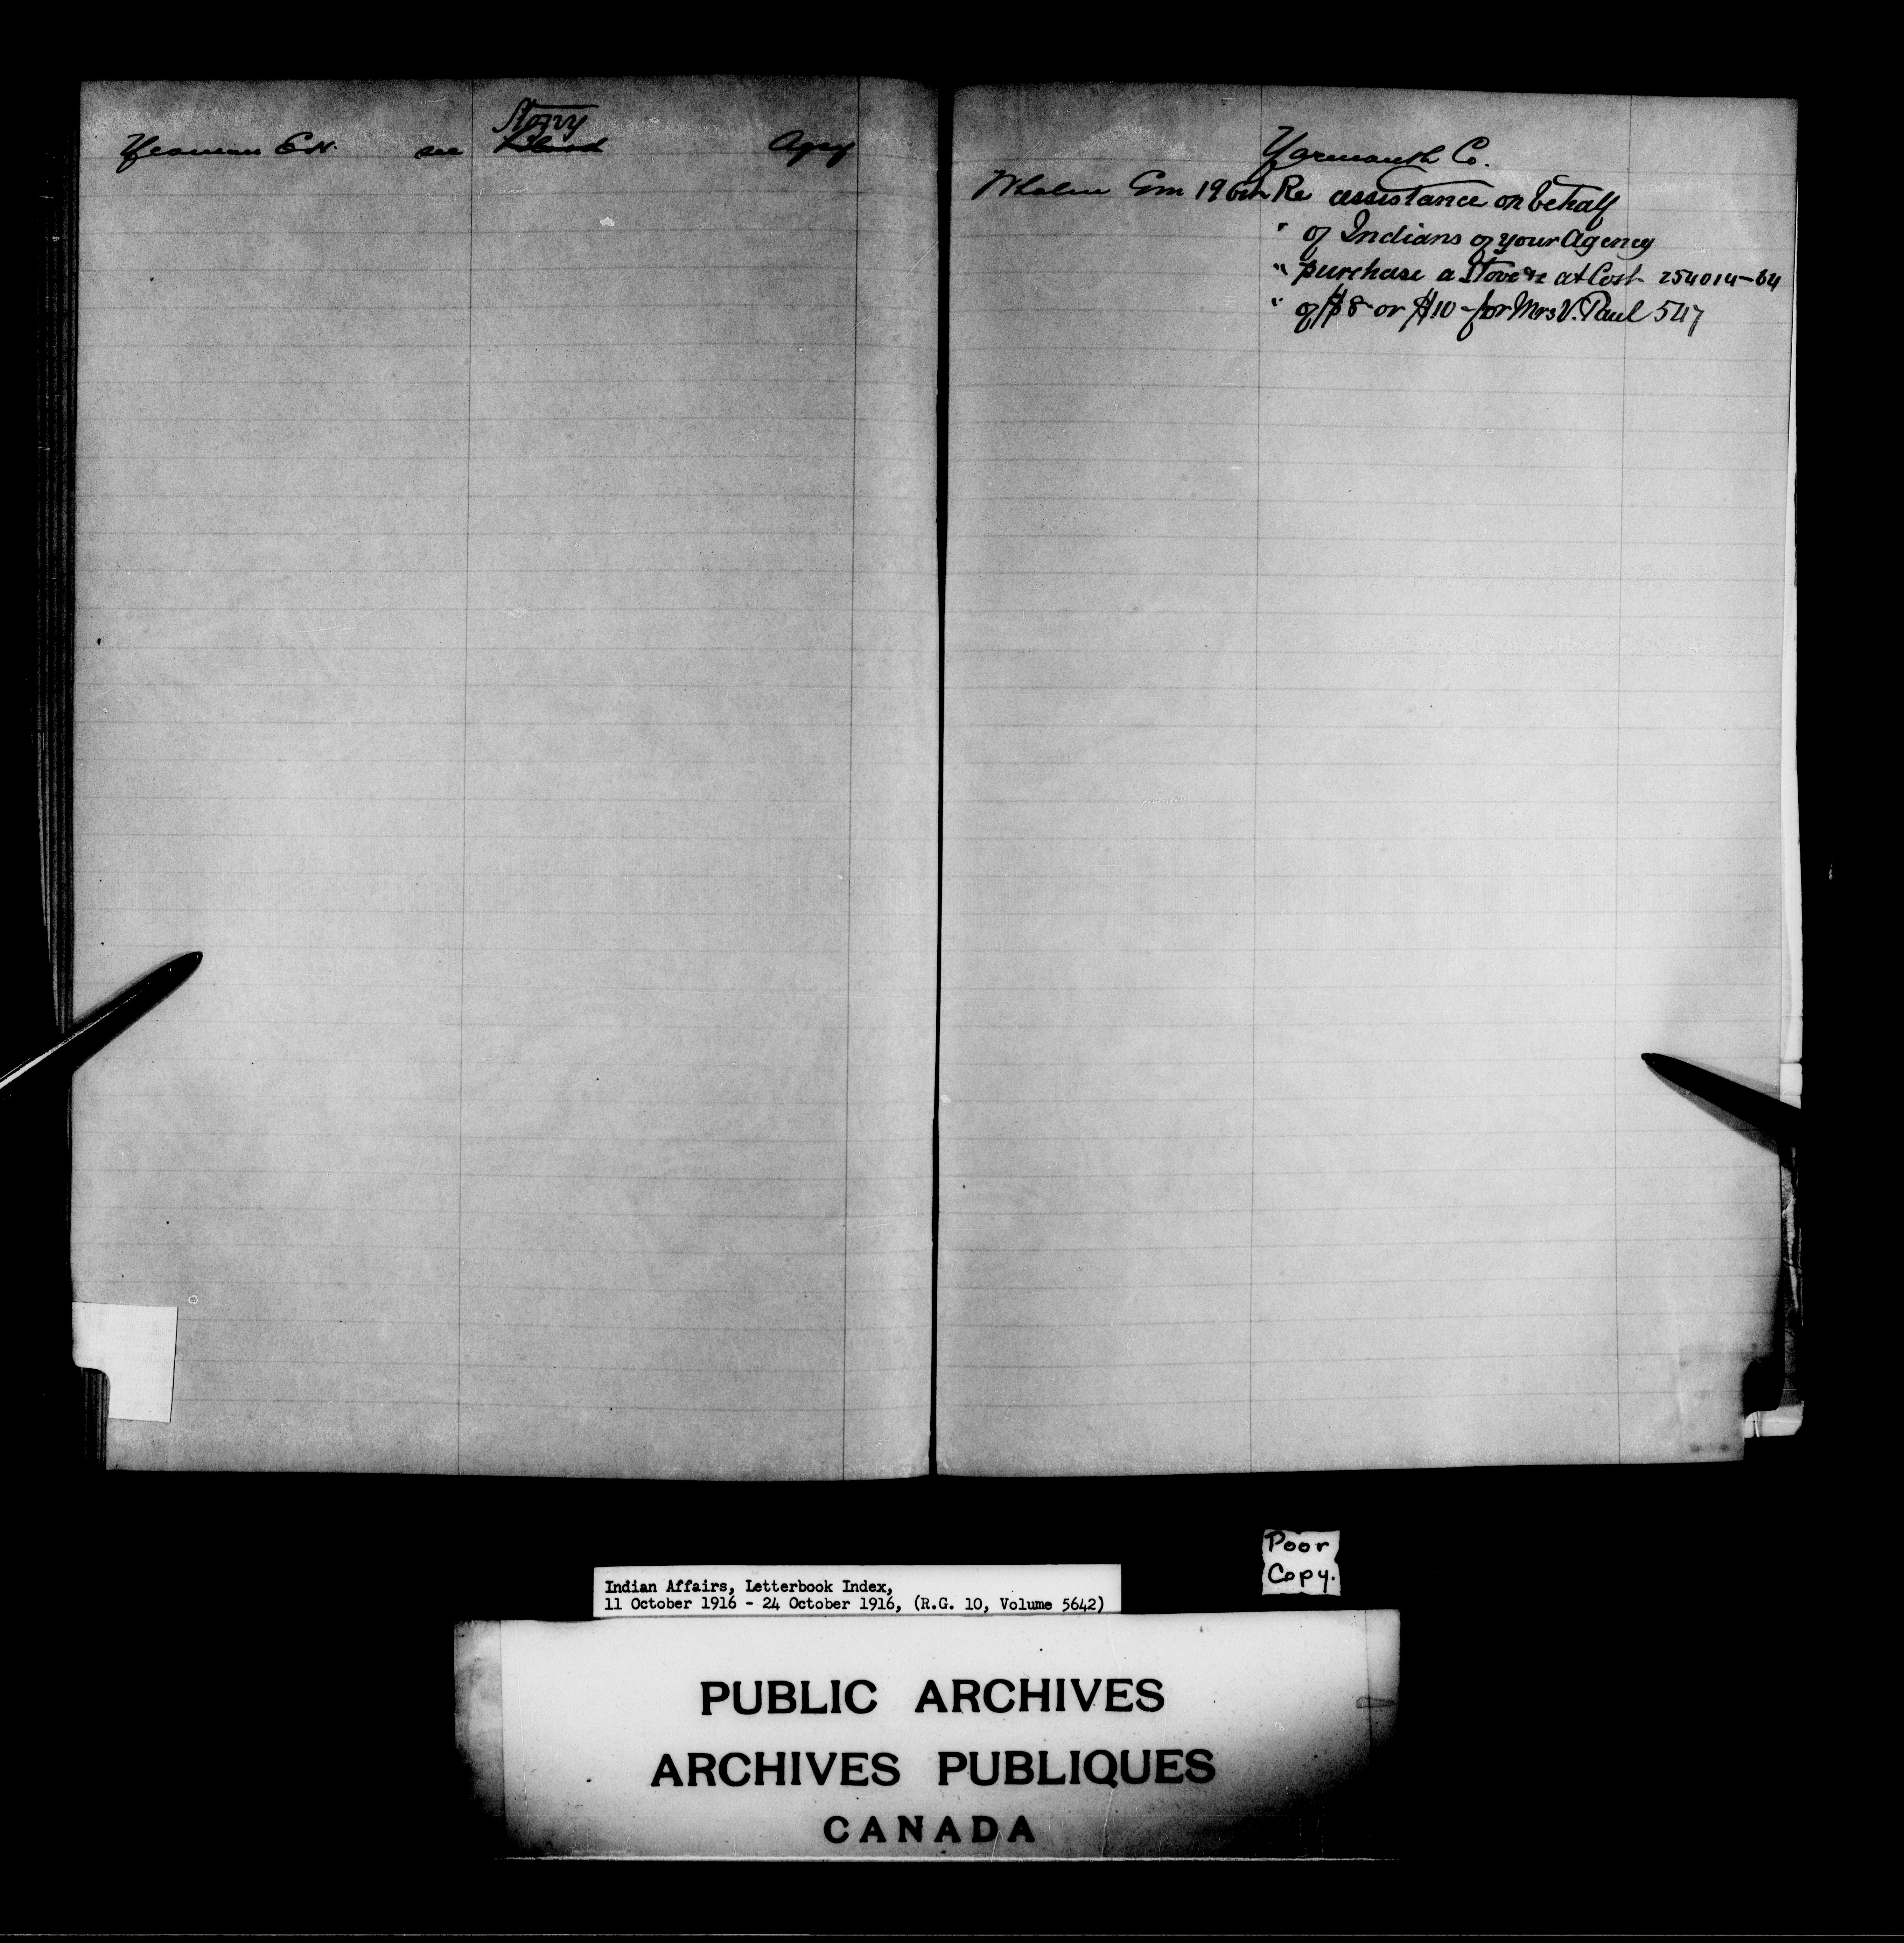 Stony
Yeoman E.H. see Blood Agcy
Yarmouth Co.
Whalen Wm 19 Oct Re assistance on behalf
" of Indians of your Agency
" purchase a Stove &c at Cost 254014-64
" of $8 or $10 - for Mrs V. Paul 547
Poor
Copy.
Indian Affairs, Letterbook Index,
11 October 1916 - 24 October 1916, (R.G. 10, Volume 5642)
PUBLIC ARCHIVES
ARCHIVES PUBLIQUES
CANADA